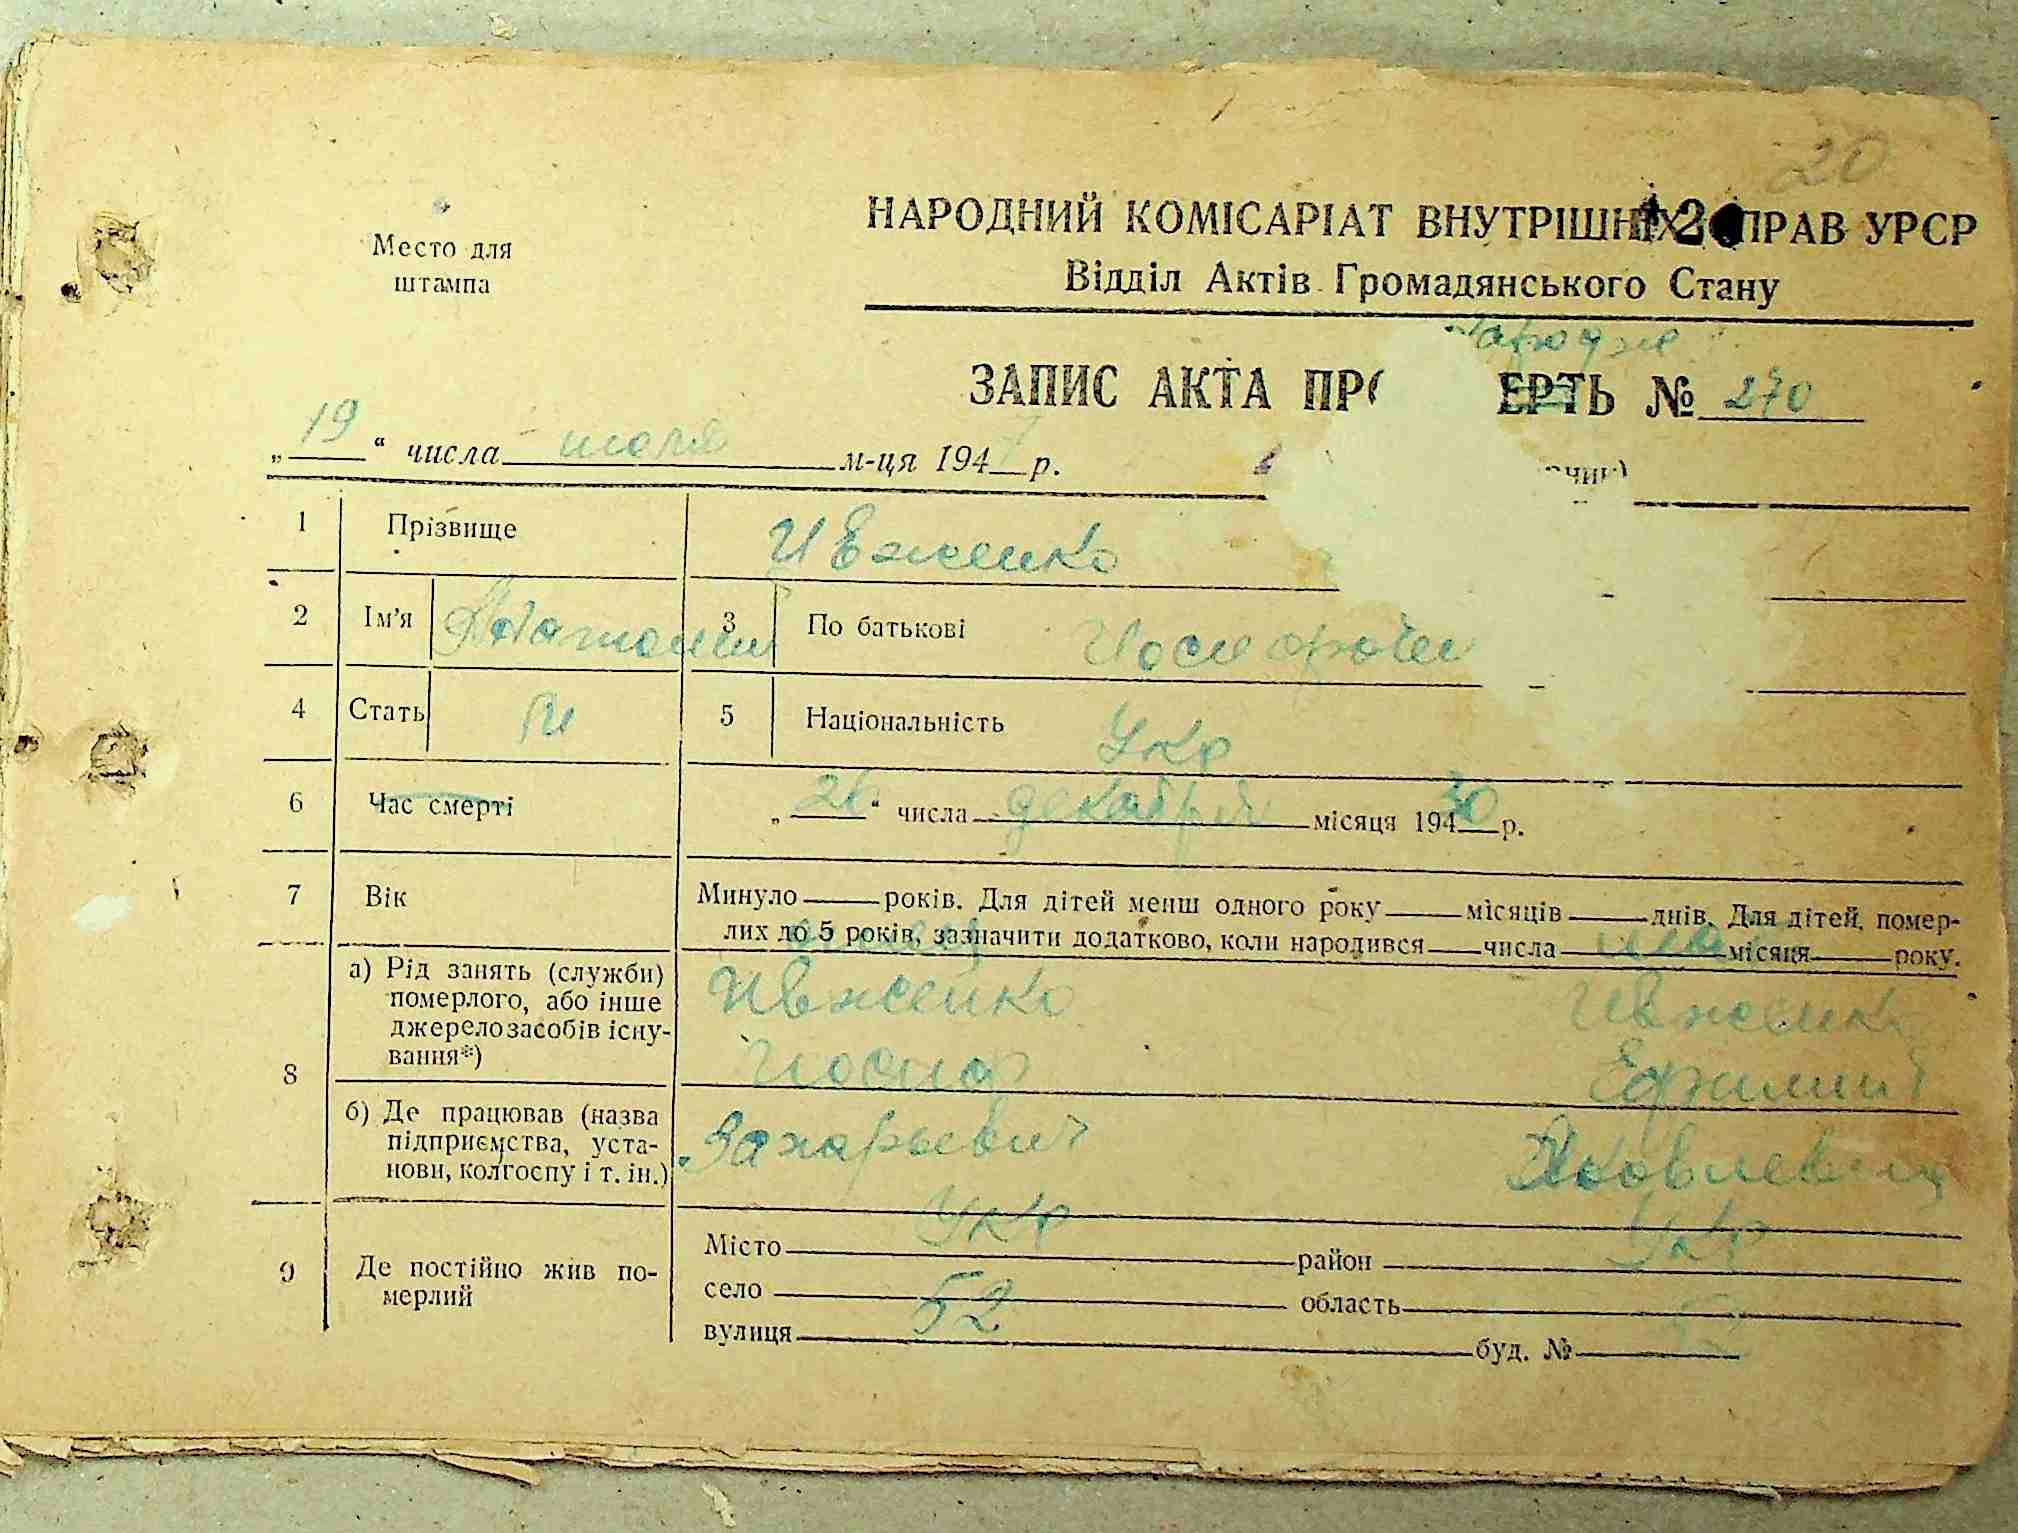 20
НАРОДНИЙ КОМІСАРІАТ ВНУТРІШНІХ СПРАВ УРСР
Место для
штампа
Відділ Актів Громадянського Стану
ЗАПИС АКТА ПРО ЕРТЬ № 270
„ 19 “ числа июля м-ця 1947 р.
1 Прізвище Ивженко
2 Ім'я 3 По батькові
4 Стать м 5 Національність Укр
6 Час смерті „ 26 “ числа декабря місяця 194 30 р.
7 Вік Минуло років. Для дітей менш одного року місяців днів. Для дітей, помер-
лих до 5 років, зазначити додатково, коли народився числа місяця року.
8 а) Рід занять (служби)
померлого, або інше
джерело засобів існу-
вання*)
Ивженко Ивженко
Иосиф
б) Де працював (назва
підприємства, уста-
нови, колгоспу і т. ін.)
Захарьевич Яковлевна
Укр Укр
9 Де постійно жив по-
мерлий
Місто район
село область
52
вулиця буд. №